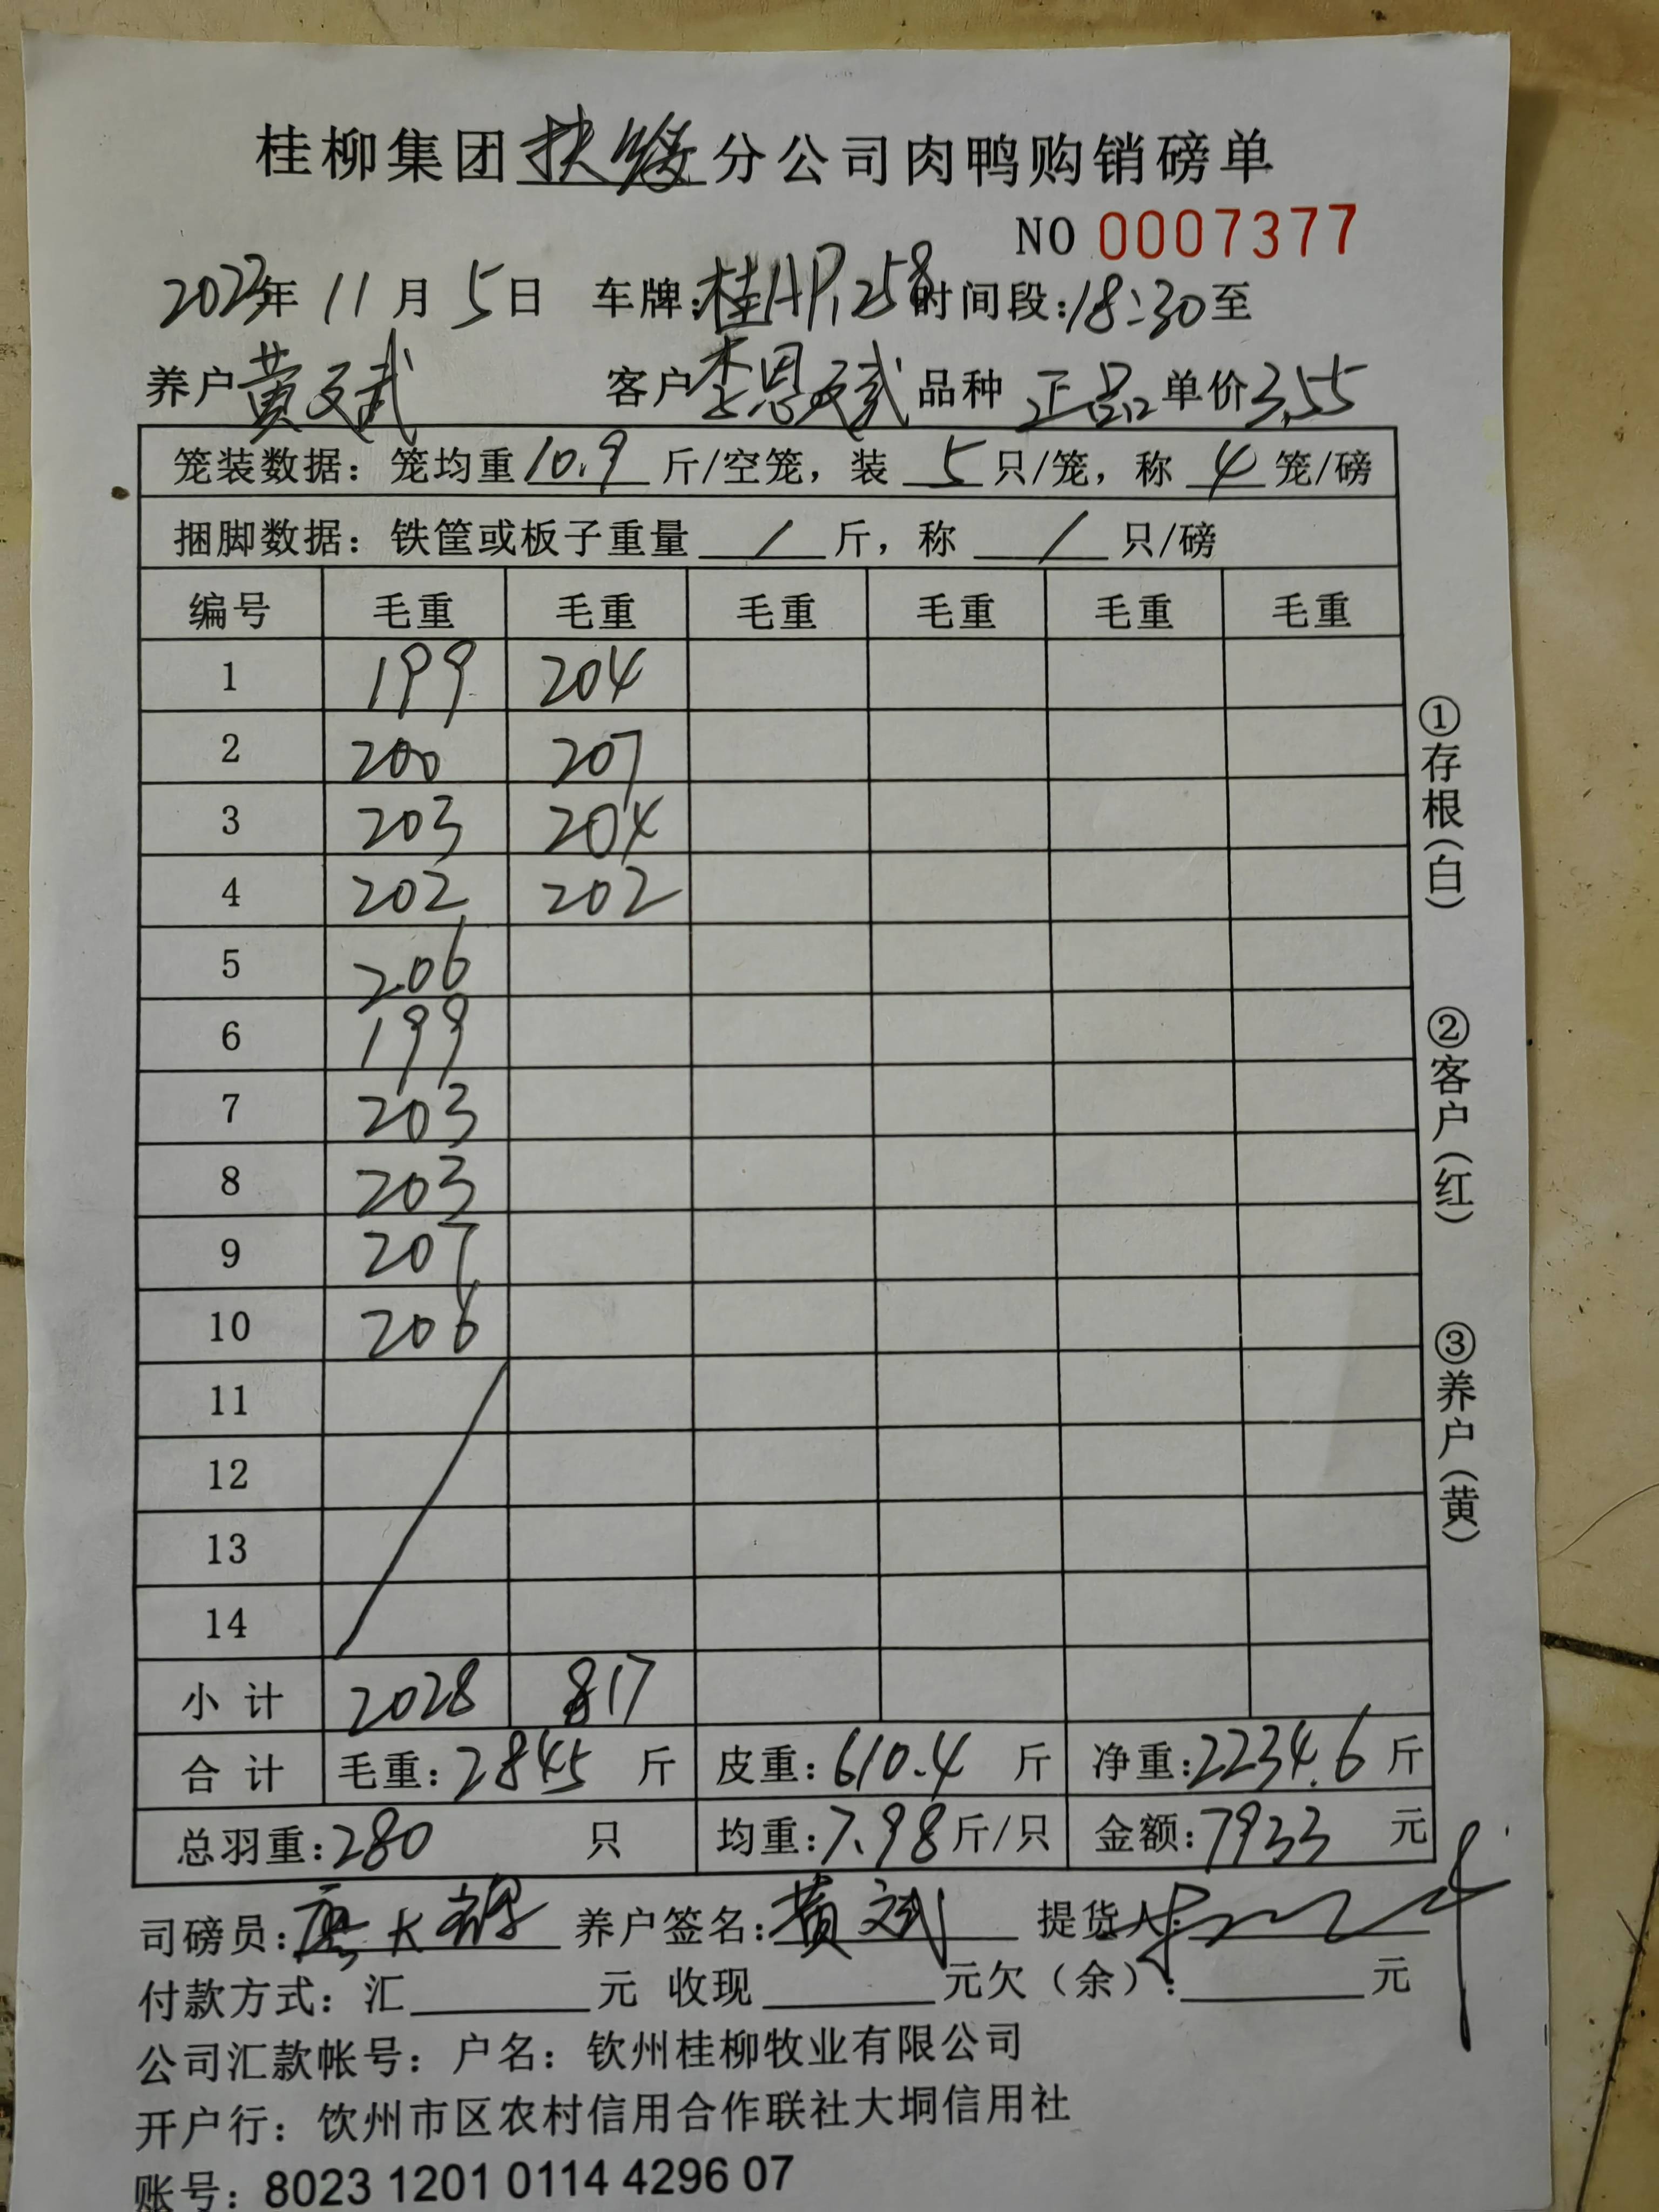 桂柳集团扶绥分公司肉鸭购销磅单
NO 0007377
2023年 11月 5日 车牌:桂AP1258 时间段:18:30至
养户黄文武 客户李恩斌 品种 正品 单价3.55
笼装数据: 笼均重10.9斤/空笼, 装 5 只/笼, 称 4 笼/磅
捆脚数据: 铁筐或板子重量 / 斤, 称 / 只/磅
编号 毛重 毛重 毛重 毛重 毛重 毛重
1 199 204
2 200 207
3 203 204
4 202 202
5 206
6 199
7 203
8 203
9 207
10 206
11
12
13
14
小计 2028 817
合计 毛重:2845 斤 皮重:610.4 斤 净重:2234.6 斤
总羽重:280 只 均重:7.98斤/只 金额:7933 元
司磅员: 养户签名:黄文武 提货人:
付款方式: 汇 元 收现 元欠(余): 元
公司汇款帐号: 户名: 钦州桂柳牧业有限公司
开户行: 饮州市区农村信用合作联社大垌信用社
账号: 8023 1201 0114 4296 07
①存根(白)
②客户(红)
③养户(黄)